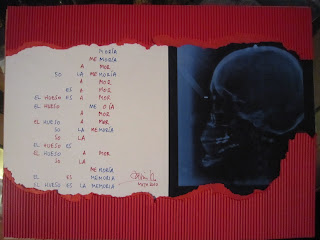 MORÍA
MEMORÍA
A MOR
SO LA MEMORÍA
A MOR
ES A MOR
EL HUESO ES A MOR
EL HUESO ME O ÍA
A MOR
EL HUESO A MOR
SO LA MEMORÍA
SO LA
EL HUESO ES
EL HUESO A MOR
SO LA
MEMORÍA
EL ES MEMORIA
EL HUESO ES LA MEMORIA
MAYO 2010